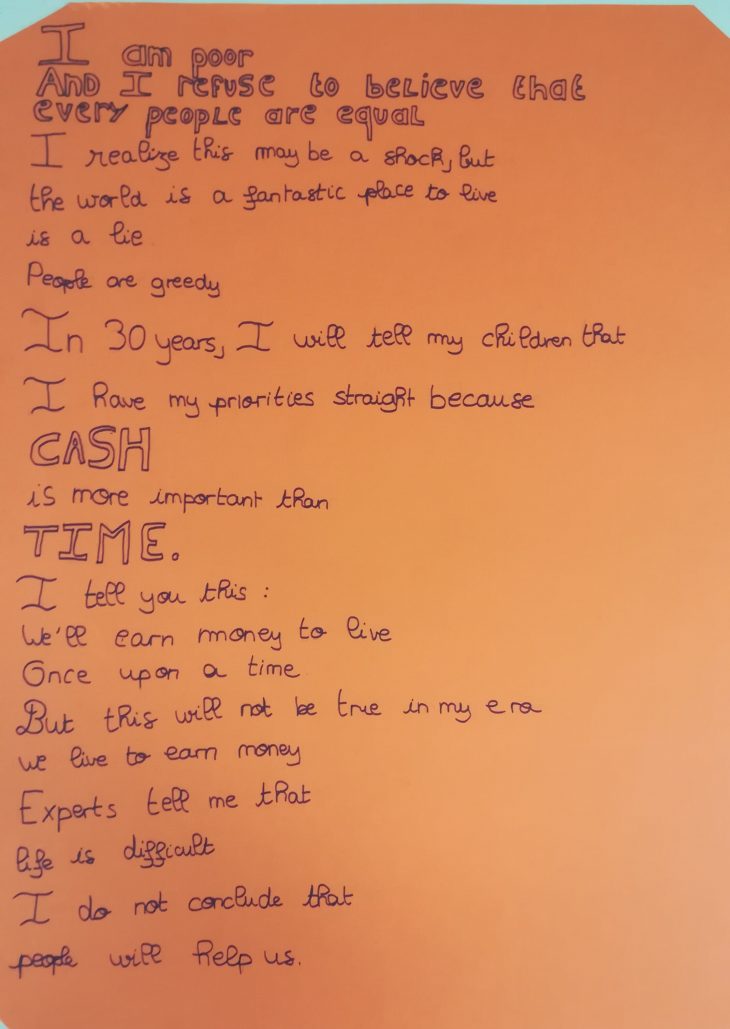 I am poor
And I refuse to believe that
every people are equal
I realize this may be a shock, but
the world is a fantastic place to live
is a lie
People are greedy
In 30 years, I will tell my children that
I have my priorities straight because
CASH
is more important than
TIME.
I tell you this :
We'll earn money to live
Once upon a time
But this will not be true in my era
we live to earn money
Experts tell me that
life is difficult
I do not conclude that
people will help us.